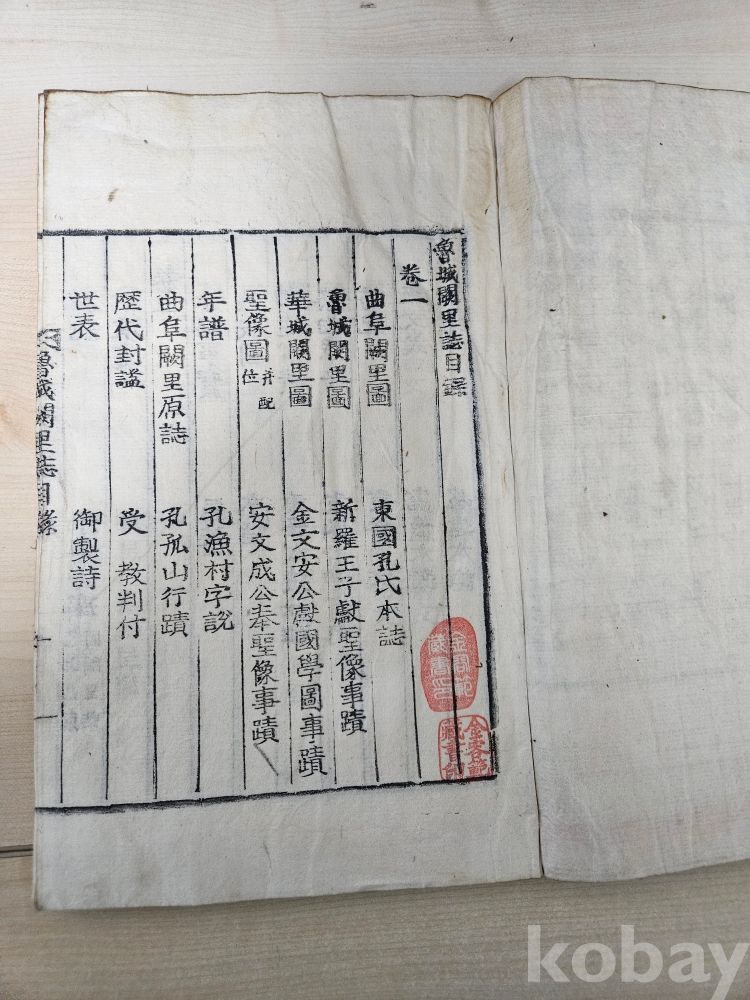 魯城闕里誌目錄
卷一
曲阜闕里圖　東國孔氏本誌
魯城闕里圖　新羅王子獻聖像事蹟
華城闕里圖　金文安公獻國學圖事蹟
聖像圖并配位　安文成公奉聖像事蹟
年譜　孔漁村字說
曲阜闕里原誌　孔孤山行蹟
歷代封謚　受　教判付
世表　御製詩
魯城闕里誌目錄
一
金容範藏書印
金容範藏書印
kobay